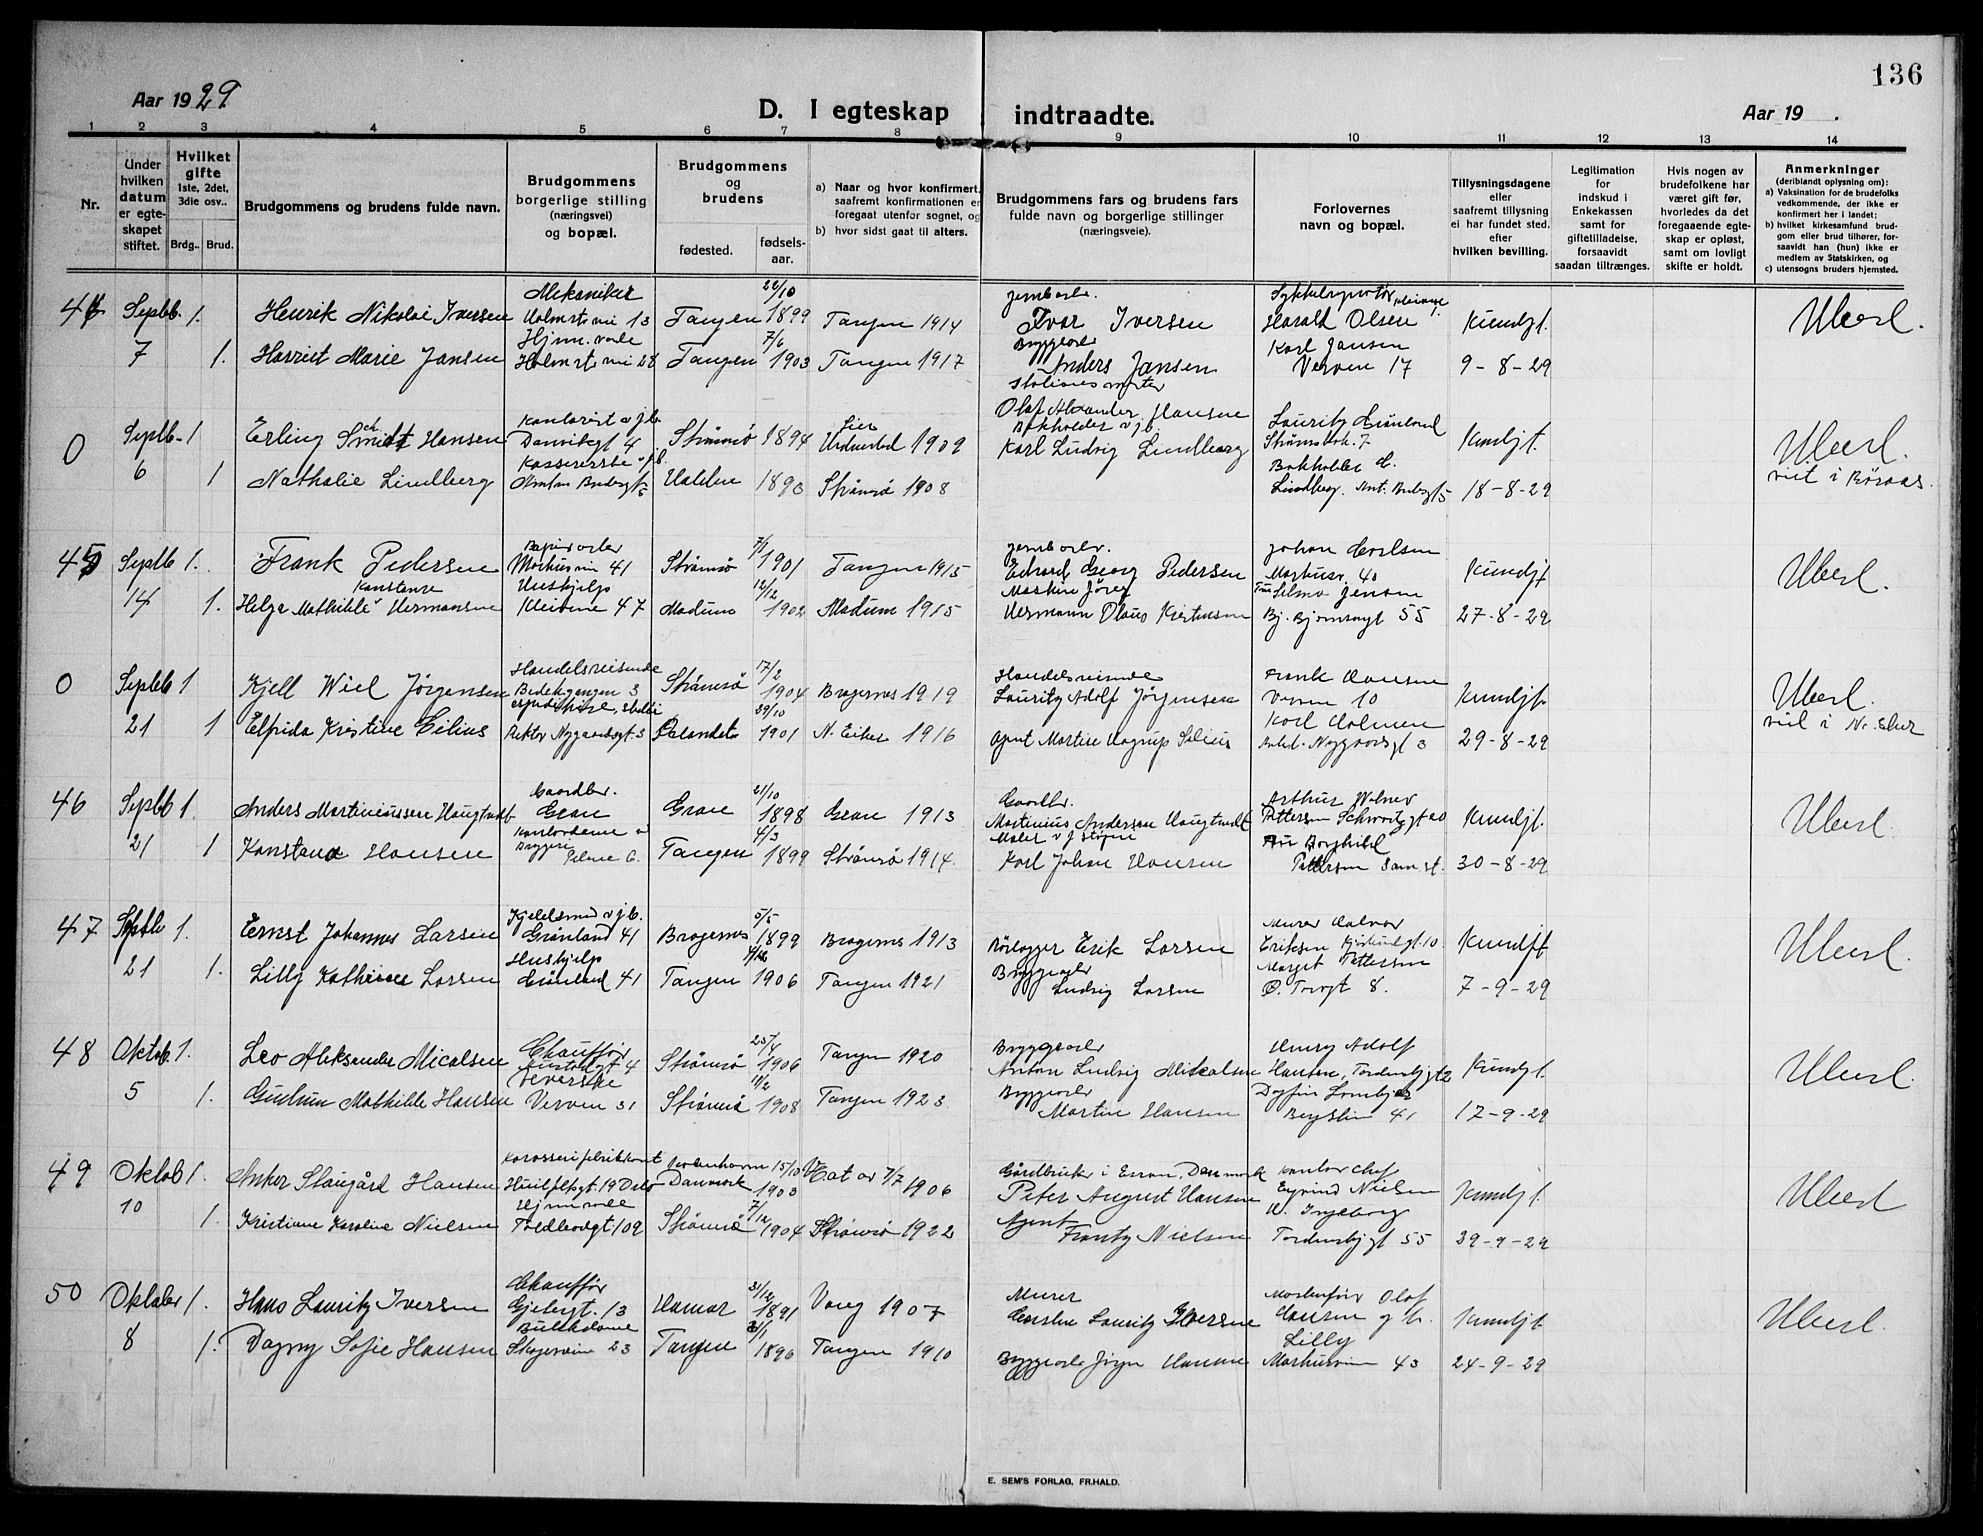 136
Aar 1929
D. I egteskap indtraadte.
Aar 19   .
1 2 3 4 5 6 7 8 9 10 11 12 13 14
Nr.
Under hvilken datum er egteskapet stiftet.
Hvilket gifte 1ste, 2det, 3die osv..
Brdg.. Brud.
Brudgommens og brudens fulde navn.
Brudgommens borgerlige stilling (næringsvei) og bopæl.
Brudgommens og brudens
fødested.
fødsels-aar.
a) Naar og hvor konfirmert, saafremt konfirmationen er foregaat utenfor sognet, og
b) hvor sidst gaat til alters.
Brudgommens fars og brudens fars fulde navn og borgerlige stillinger (næringsveie).
Forlovernes navn og bopæl.
Tillysningsdagene eller saafremt tillysning ei har fundet sted, efter hvilken bevilling.
Legitimation for indskud i Enkekassen samt for giftetilladelse, forsaavidt saadan tiltrænges.
Hvis nogen av brudefolkene har været gift før, hvorledes da det foregaaende egteskap er opløst, samt om lovligt skifte er holdt.
Anmerkninger (deriblandt oplysning om):
a) Vaksination for de brudefolks vedkommende, der ikke er konfirmert her i landet;
b) hvilket kirkesamfund brudgom eller brud tilhører, forsaavidt han (hun) ikke er medlem av Statskirken, og
c) utensogns bruders hjemsted.
44 Septb. 1. Henrik Nikolai Iversen Mekaniker Holmstr vei 13 Tangen 26/10 1899 Tangen 1914 Jernbarb. Ivar Iversen Harald Olsen Kundgj. Uberl.
7 1. Harriet Marie Jansen Hjem. vade Holmstr vei 28 Tangen 7/6 1903 Tangen 1917 Bryggearb Anders Jansen Karl Jansen Verven 17 9-8-29
0 Septb. 1 Erling Smidt Hansen Kontorist v jb. Danvikgt 4 Strømsø 1894 Lier 1909 Stationsmester Olaf Alexander Hansen Lauritz Grønland Kundgjt. Uberl.
6 1 Nathalie Lindberg Kassererske v jb. Halden 1890 Strømsø 1908 Bokholder v jb. Karl Ludvig Lindberg Bokholder K. Lindberg. 18-8-29 viet i Røraas.
45 Septb 1. Frank Pedersen Papirarb Marhusvn 41 Strømsø 7/1 1901 Tangen 1915 Jernbarb. Edvard Georg Pedersen Johan Carlsen Marhusv. 40 Kundgjt Uberl.
14 1. Helga Mathilde Konstanse Hermansen Hushjelp Kleivene 47 Modum 12/12 1902 Modum 1915 Hermann Olaus Kristiansen Fru Selma Jensen Bj. Bjørnsegt 55 27-8-29
0 Septb 1 Kjell Wiel Jørgensen Handelsreisende 3 Strømsø 17/2 1904 Bragernes 1919 Handelsreisende Lauritz Adolf Jørgensen Frank Hansen Verven 10 Kundgjt. Uberl.
21 1 Elfrida Kristine Silius Rektor Nygaardsgt. 3 29/10 1901 N. Eiker 1916 Agent Martin Silius Karl Holmen Nygaardsgt 3 29-8-29 viet i Nr.
46 Septb 1. Anders Martiniussen Haugtvedt Gaardbr. Gran Gran 21/10 1898 Gran 1913 Gaardbr. Martinius Andersen Haugtvedt Arthur Pettersen Schwartzgt 20 Kundgjt. Uberl.
21 1 Konstance Hansen Kontordame v Bryggeri Tangen 4/3 1899 Strømsø 1914. Karl Johan Hansen Fru Borghild Pettersen Sam st. 30-8-29
47 Septb 1. Ernst Johannes Larsen Kjelelsmed v jb. Grønland 41 Bragernes 5/5 1899 Bragernes 1913 Rørlegger Erik Larsen Murer Halvor Eriksen Kundgjt Uberl.
21 1. Lilly Kathrine Larsen Hushjelp Grønland 41 Tangen 1906 Tangen 1921 Bryggearb Ludvig Larsen Margit Pettersen Ø. Torvgt 8. 7-9-29
48 Oktob. 1. Leo Aleksander Micalsen Chauffør 4 Strømsø 25/4 1906 Tangen 1920 Bryggearb Anton Ludvig Mikalsen Henry Adolf Hansen, Tordenskj gt 2 Kundgjt. Uberl.
5 1. Gudrun Mathilde Hansen Verven 31 Strømsø 11/2 1908 Tangen 1923. Bryggearb Martin Hansen Dagfin Bergstien 41 17-9-29
49 Oktob 1. Anker Slaugård Hansen Huitfeltsgt. 19 Oslo Kobenhavn Danmark 15/10 1903 Vat at 7/7 1906 Gårdbruker i Danmark Peter August Hansen Kontorchef Eyvind Nielsen Kundgjt. Uberl
10 1. Kristiane Karoline Nielsen Hjem. vade Toldbodgt 109 Strømsø 7/12 1904 Strømsø 1922 Agent Frantz Nielsen Ingeborg Tordenskj gt 55 29-9-29
50 Oktober 1. Hans Lauritz Iversen Chauffør Gjetergt. 13 Hamar 31/12 1891 Vang 1907 Murer Lauritz Iversen Olaf Hansen Kundgjt. Uberl.
8 1. Dagny Sofie Hansen Butikdame Skogerveien 23 Tangen 1890 Tangen 1910 Bryggearb Jørgen Hansen Lilly Marhusvein 43 24-9-29
E. SEM'S FORLAG, FR.HALD.